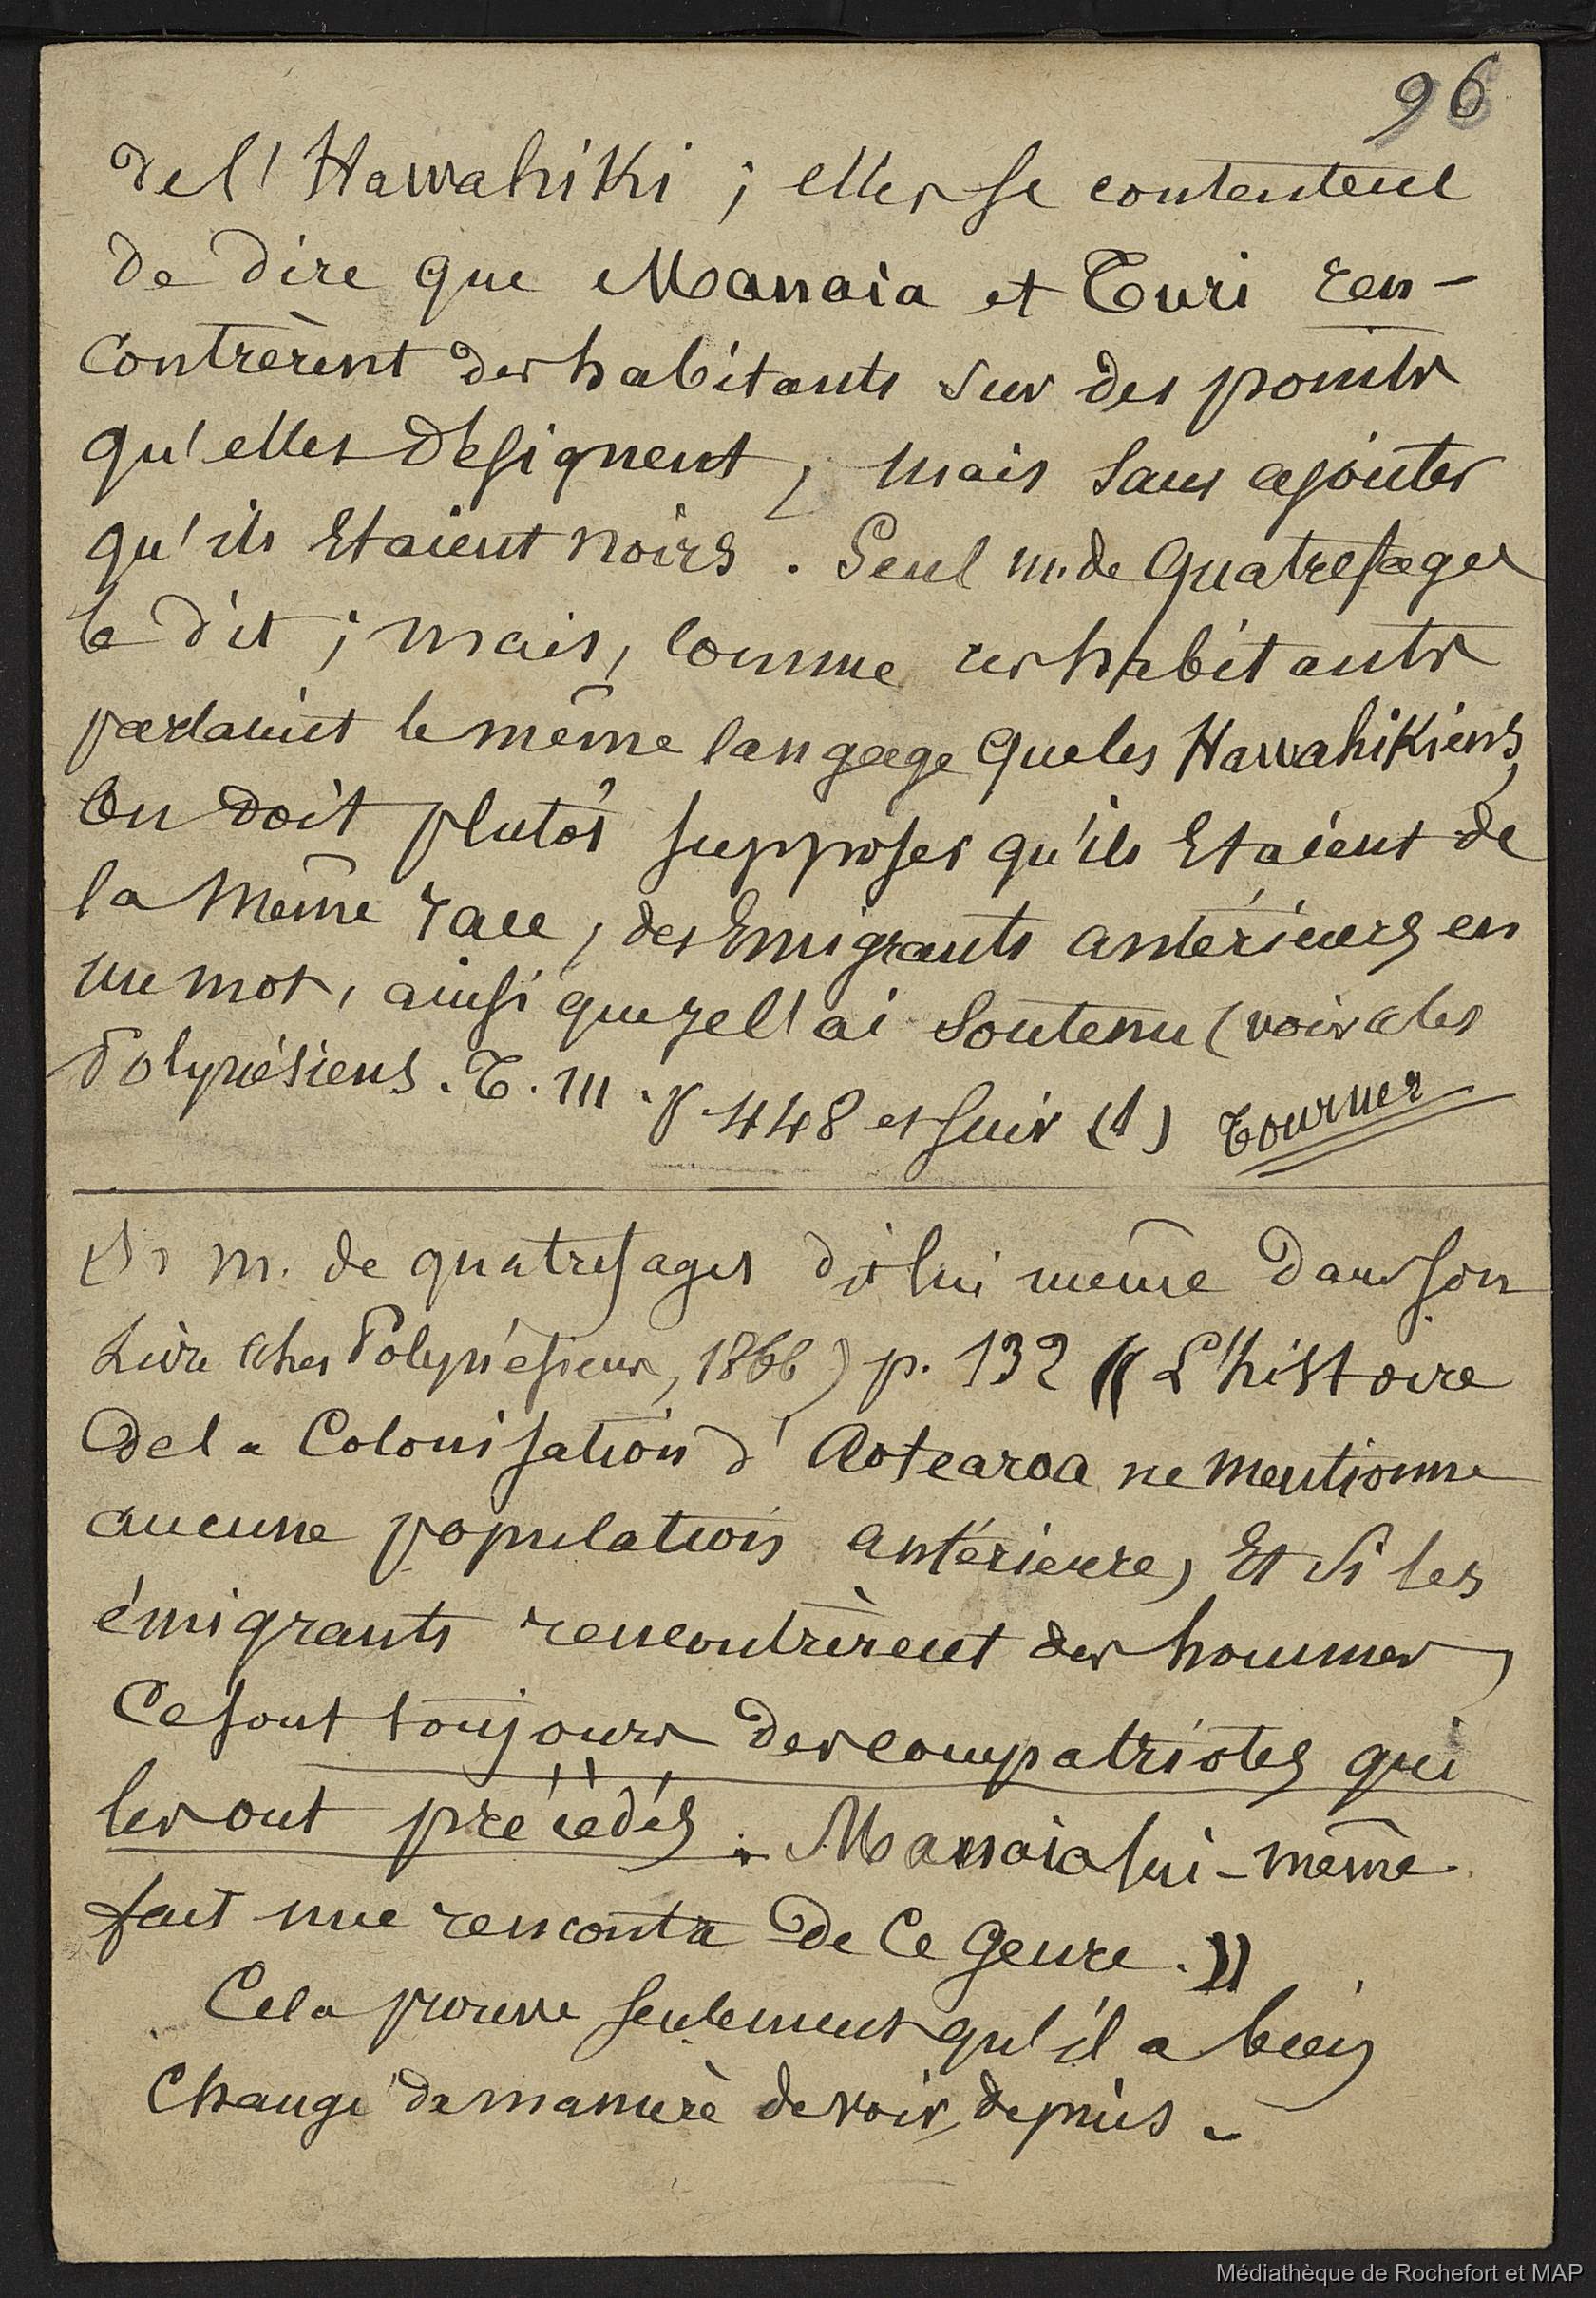 96
de l'Hawahiki ; elles se contentent
de dire que Manaia et Turi ren-
contrèrent des habitants sur des points
qu'elles désignent, mais sans ajouter
qu'ils Etaient noirs. Seul m. de Quatrefages
le dit ; mais, comme ces habitants
parlaient le même langage que les Hawahikiens,
on doit plutôt supposer qu'ils Etaient de
la même race, des Emigrants antérieurs en
un mot, ainsi que je l'ai soutenu (voir les
Polynésiens. T. III. p. 448 et suiv (1) Tourner
m. de quatrefages dit lui même dans son
Livre (les Polynésiens, 1866) p. 132 « L'histoire
de la Colonisation d'Aotearoa ne mentionne
aucune population antérieure, Et si les
émigrants rencontrèrent des hommes,
Ce sont toujours des compatriotes qui
les ont précédés. Manaia lui-même
fait une rencontre de ce genre. »
Cela prouve seulement qu'il a bien
Changé de manière de voir depuis.
Médiathèque de Rochefort et MAP